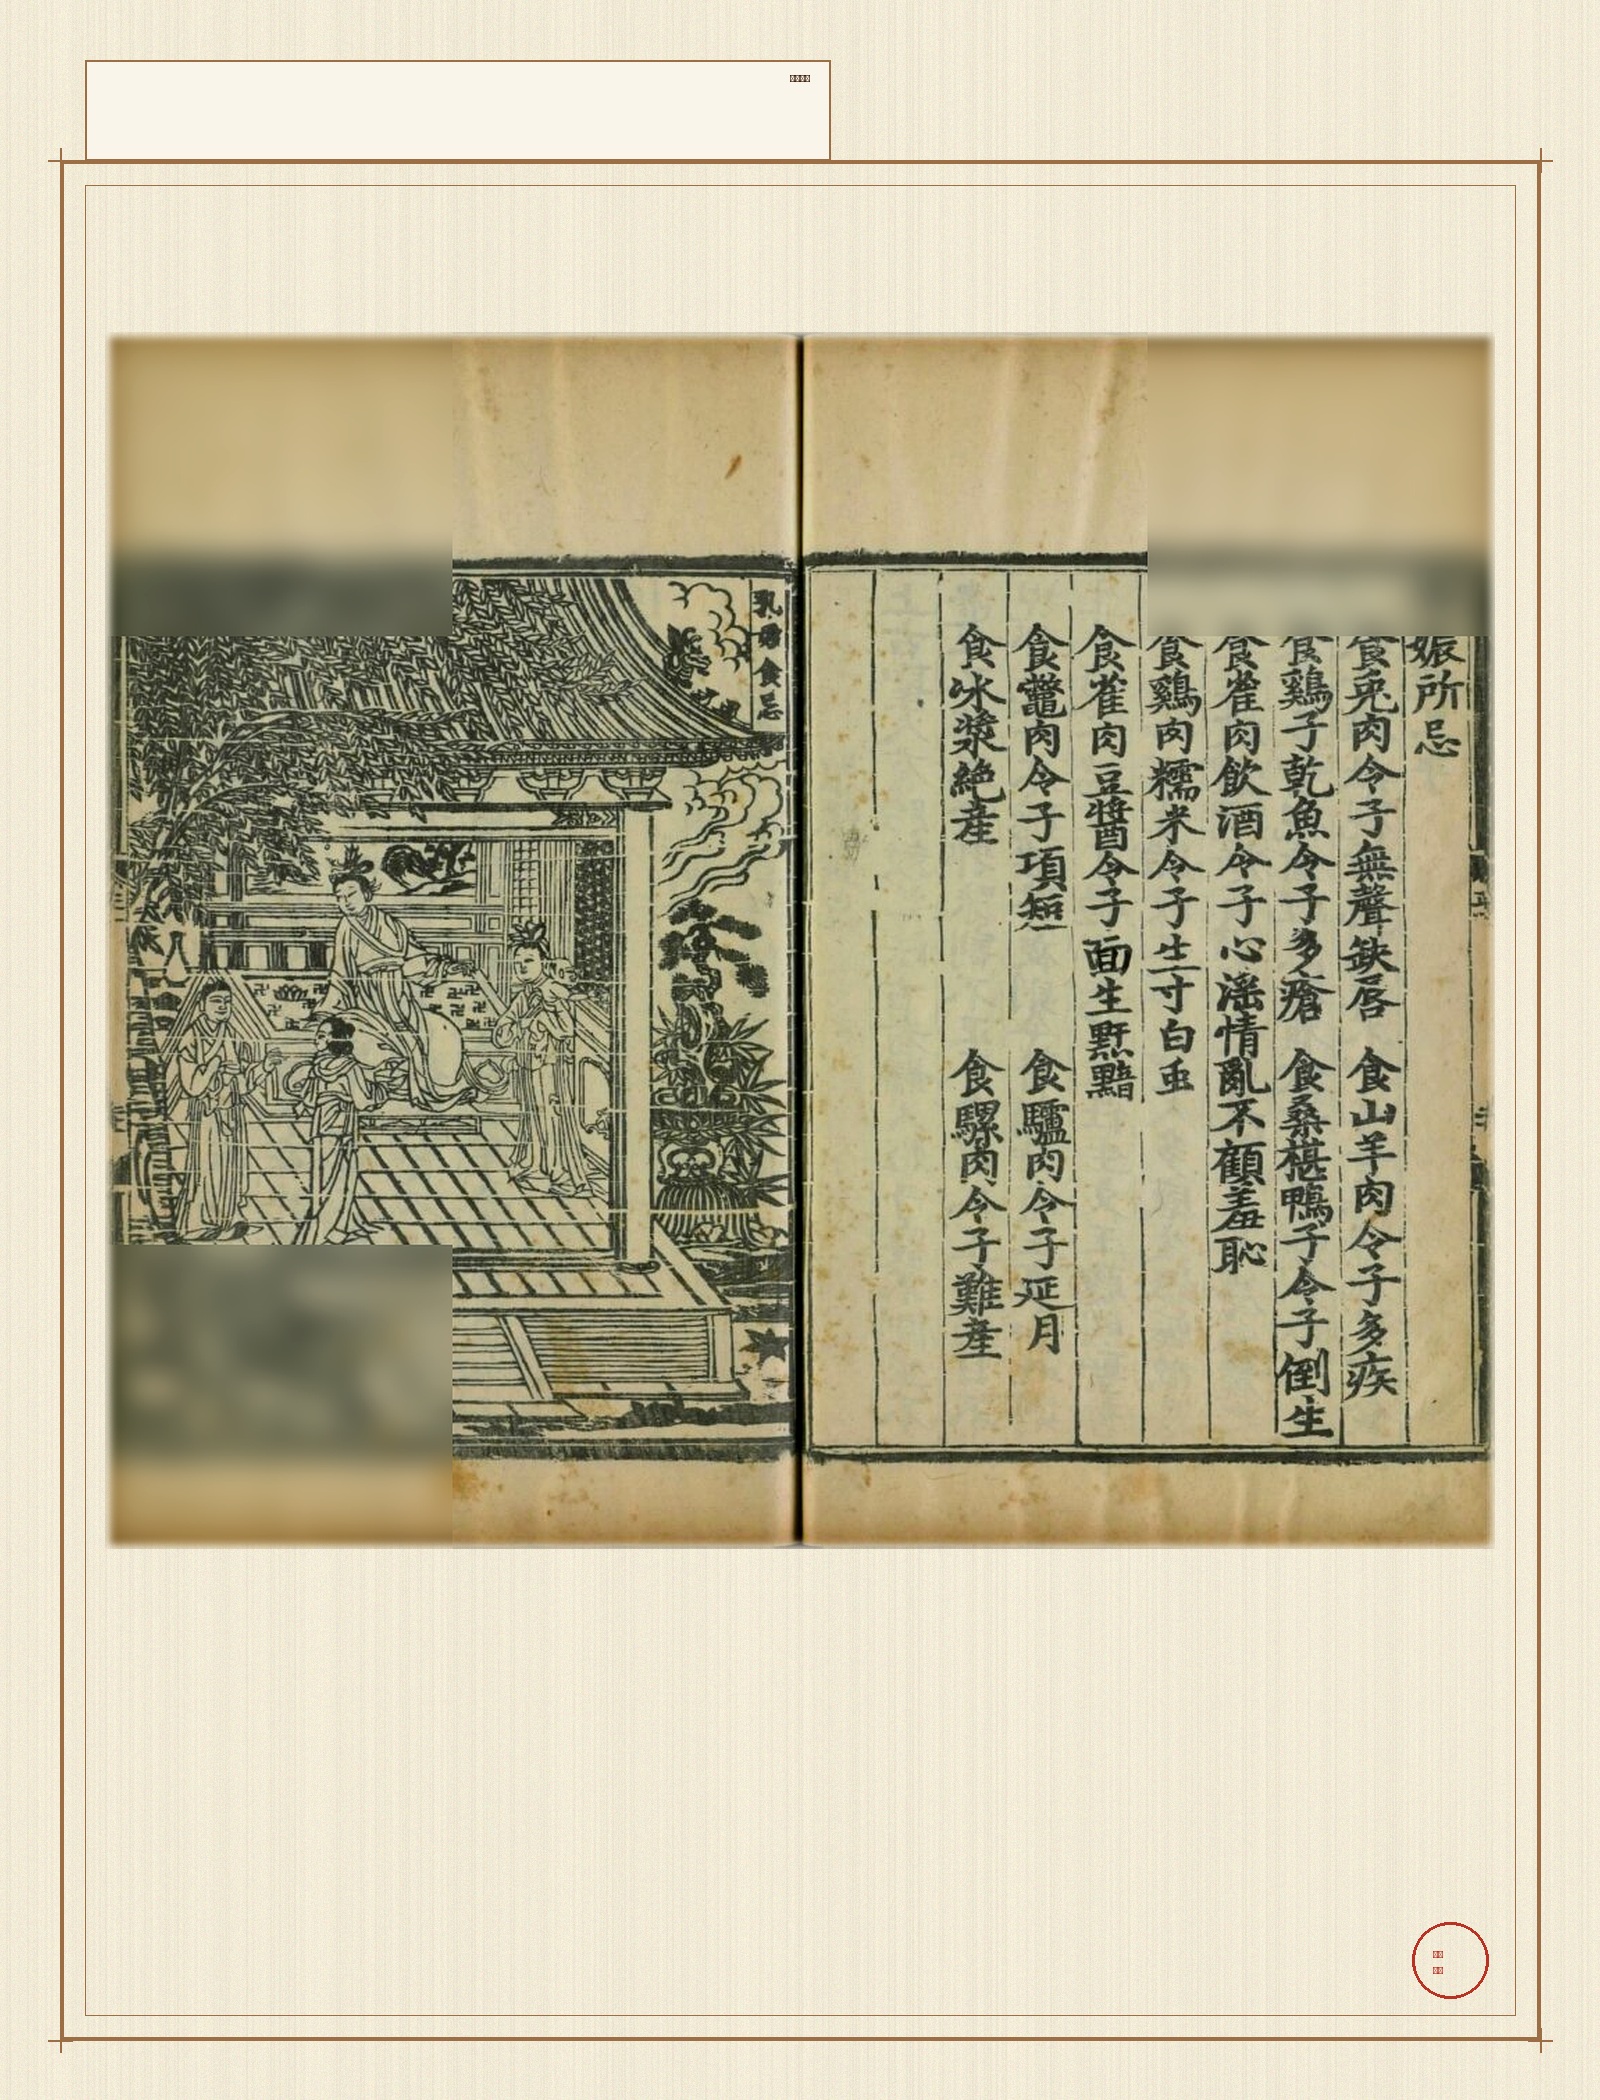 娠所忌
食兎肉令子無聲缺唇　食山羊肉令子多疾
食鷄子乾魚令子多瘡　食桑椹鴨子令子倒生
食雀肉飲酒令子心滛情亂不顧羞恥
食鷄肉糯米令子生寸白虫
食雀肉豆醬令子面生䵟黯
食鼈肉令子項短　食驢肉令子延月
食冰漿絶産　食騾肉令子難産
乳母食忌